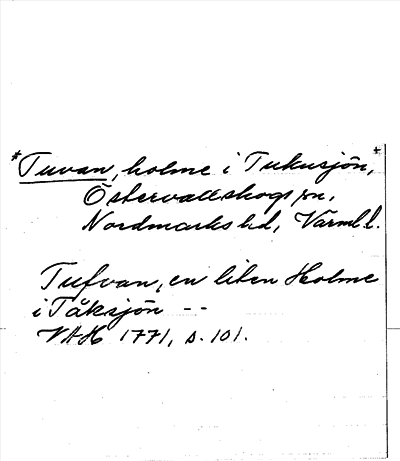 *Tuvan, holme i Tukusjön, +
Östervallskogs sn,
Nordmarks hd, Värml. l.
Tufvan, en liten Holme
i Tåksjön --
VAH 1771, s. 101.